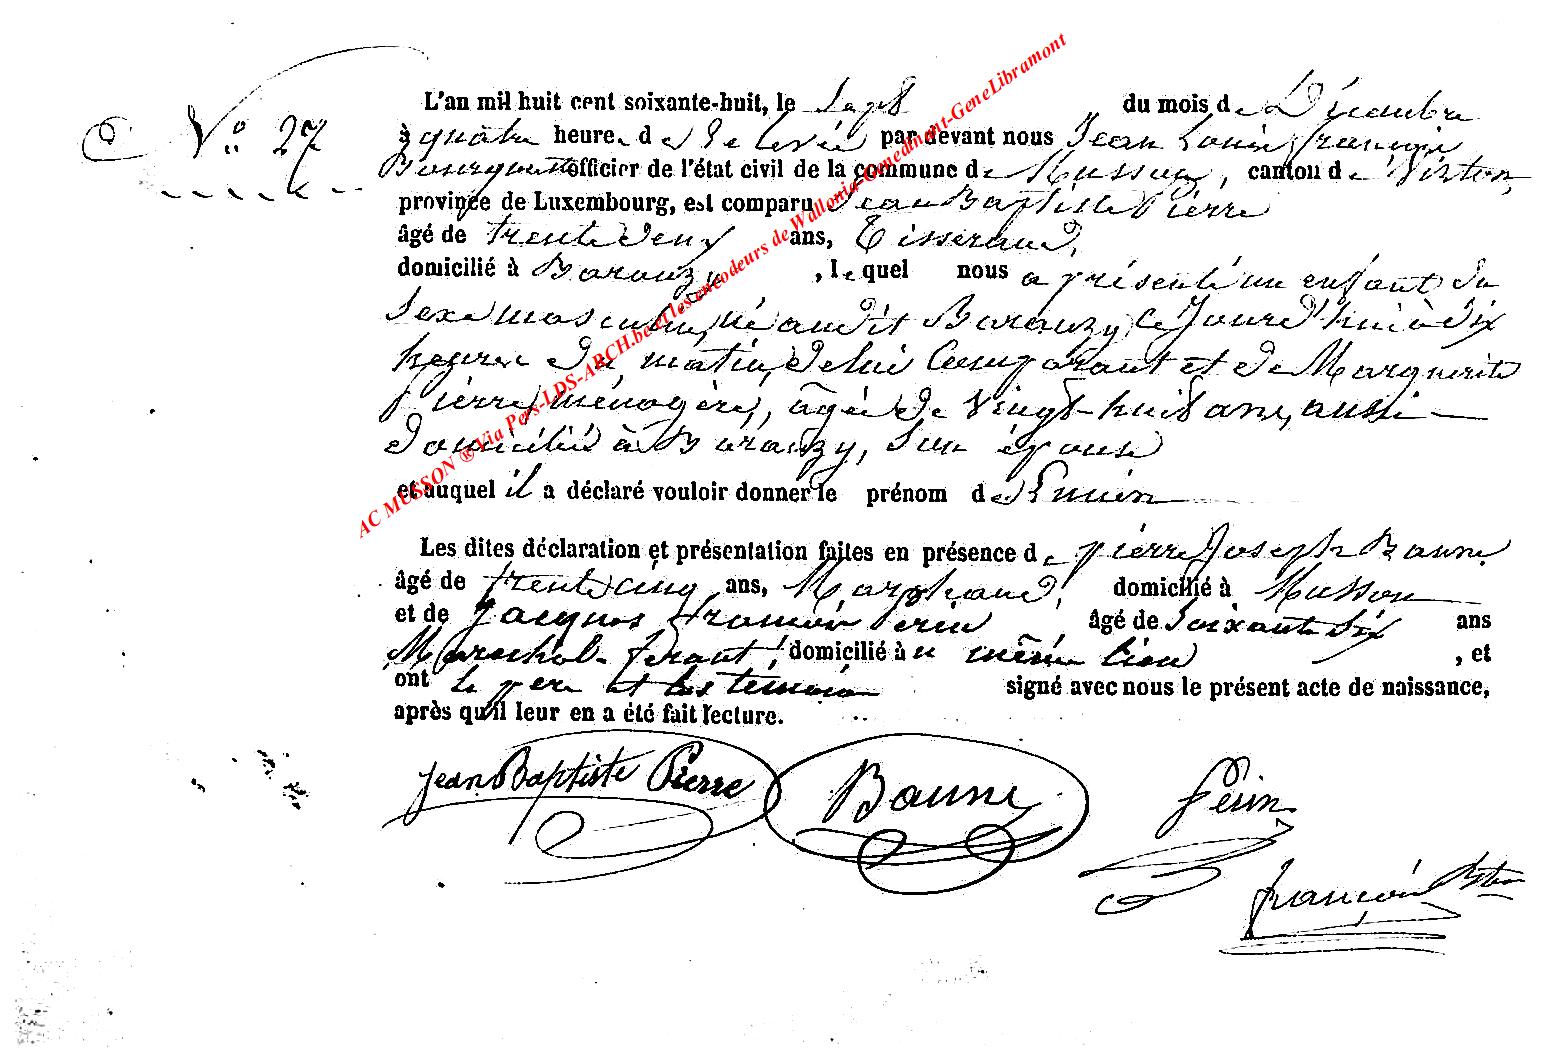 N° 27
L'an mil huit cent soixante-huit, le Sept du mois de Décembre
à quatre heures de relevée par devant nous Jean Louis françois
officier de l'état civil de la commune de Musson, canton de Virton,
province de Luxembourg, est comparu Jean Baptiste Pierre
âgé de trente deux ans, Tisserand,
domicilié à Baranzy, lequel nous a présenté un enfant du
Sexe masculin, né audit Baranzy, ce Jourd'hui à dix
heures du matin, de lui Comparant et de Marguerite
Pierre, ménagère, âgée de Vingt-huit ans, aussi
domicilié à Baranzy, Son épouse
et auquel il a déclaré vouloir donner le prénom de
Les dites déclaration et présentation faites en présence de pierre Joseph Baune
âgé de trente cinq ans, Marchand, domicilié à Musson
et de Jacques françois Perin âgé de Soixante Six ans
Maréchal-ferant, domicilié au même lieu, et
ont le père et les témoins signé avec nous le présent acte de naissance,
après qu'il leur en a été fait lecture.
Jean Baptiste Pierre Baune Perin
françois
AC MUSSON ® Via Pers-LDS-ARCH.be et les encodeurs de Wallonia-Genedinant-GeneLibramont